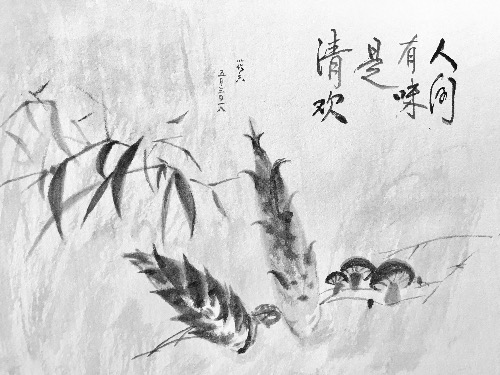 人间
有味
是
清欢